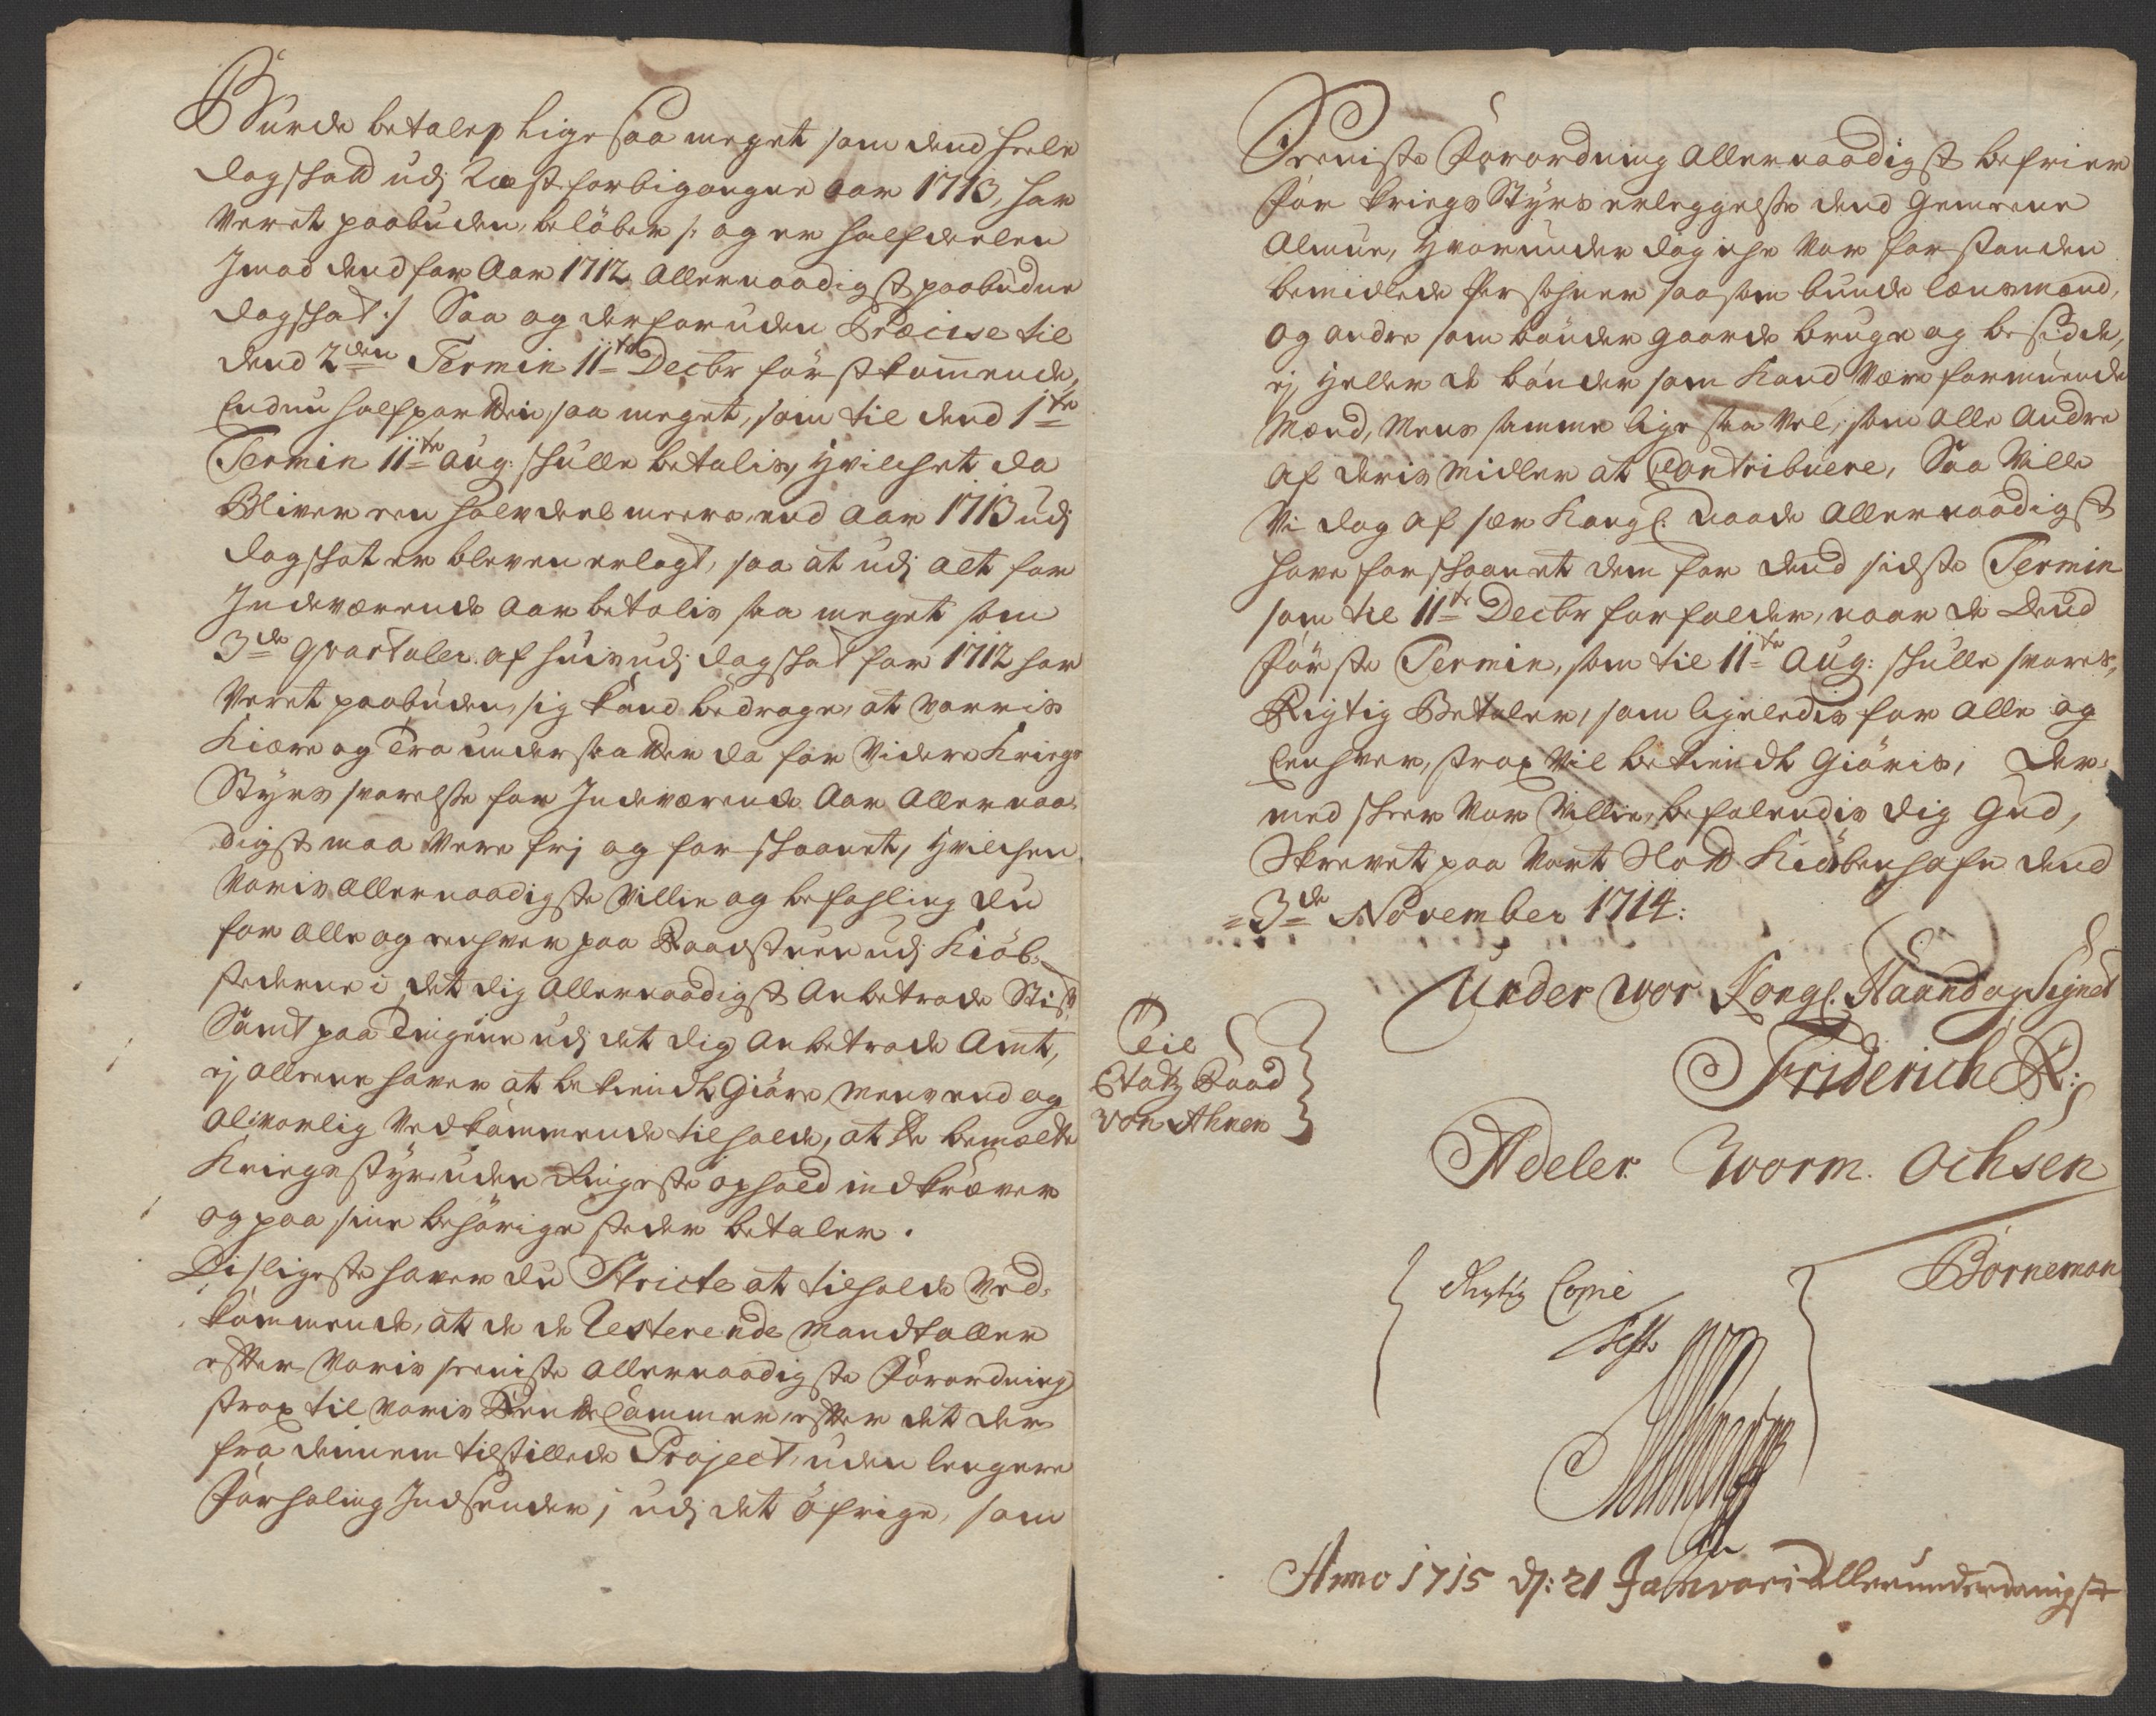 Burde betales lige saa meget som dend heele
dagskatt udj Næstforbigangne Aar 1713, har
veret paabuden, beløber /: og er halfdeelen
Jmod dend for Aar 1712 Allernaadigst paabudne
dagskat :/ Saa og derforuden Præcise til
dend 2den Termin 11te Decbr først kommende,
Endnu halfparten, saa meget, som til dend 1te
Termin 11te Aug: skulle betalis, hvilchet da
Bliver een halvdeel meere, end Aar 1713 udj
dagskat er bleven erlagt, saa at udj alt for
Jndeværende Aar betalis saa meget som
3de Qvartaler af hvis udj dagskat for 1712 har
Veret paabuden, sig kand bedrage, at Vorris
Kiære og Troe undersaatter da for Videre Kriegs
Styrs svarelse for Jndeværende Aar Allernaa-
digst maa Vere frj og forskaanet, hvilchen
Voris Allernaadigste Villie og befahling du
for alle og eenhver paa Raadstuen udj Kiøb-
stederne i det dig Allernaadigst Anbetroede Stift
Samt paa Tingene udj det dig Anbetroede Amt,
ej alleene haver at bekiendt Giøre, mens end og
Alvorlig Vedkommende tilholde, at de bemælte
Kriegsstyr uden Ringeste ophold indkræver
og paa sine behørige steder betaler.
Disligeste haver du Stricte at tilholde Ved-
kommende, at de de Resterende Mandtaller
efter Voris seeniste Allernaadigste Forordning
strax til Voris Rentte Cammer, efter det der-
fra dennem tilstillede Project, uden lengere
Forhaling Jndsender; udj det øfrige, som
Seeniste Forordning Allernaadigst befrier
for Kriegs Styrs erleggelse dend Gemeene
Almue, hvorunder dog iche Var forstanden
bemidlede Persohner saasom bunde lænsmænd,
og andre som bønder gaarde bruge og besidde,
ej heller de bønder som Kand Være formuende
Mænd, Mens samme lige saa Vel, som Alle Andre
af deris Midler at Contribuere, Saa Ville
Vi dog af sær Kongl: Naade Allernaadigst
have forskaanet dem for dend sidste Termin
som til 11te Decbr forfalder, naar de dend
Første Termin, som til 11te Aug: skulle svares,
Rigtig Betaler, som ligeledis for Alle og
Eenhver, strax Vil bekiendt Giøris, Der-
med skeer Vor Villie, befalendis dig Gud,
Skrevet paa Vort Slott Kiøbenhafn dend
3de November 1714:
Under Wor Kongl. Haand og Signet
Friderich R:
Til
Etatz Raad
von Ahnen
Adeler. Worm. Ochsen
Børneman
Rigtig Copie
Test:
Anno 1715 d: 21 Januari Allerunderdanigst